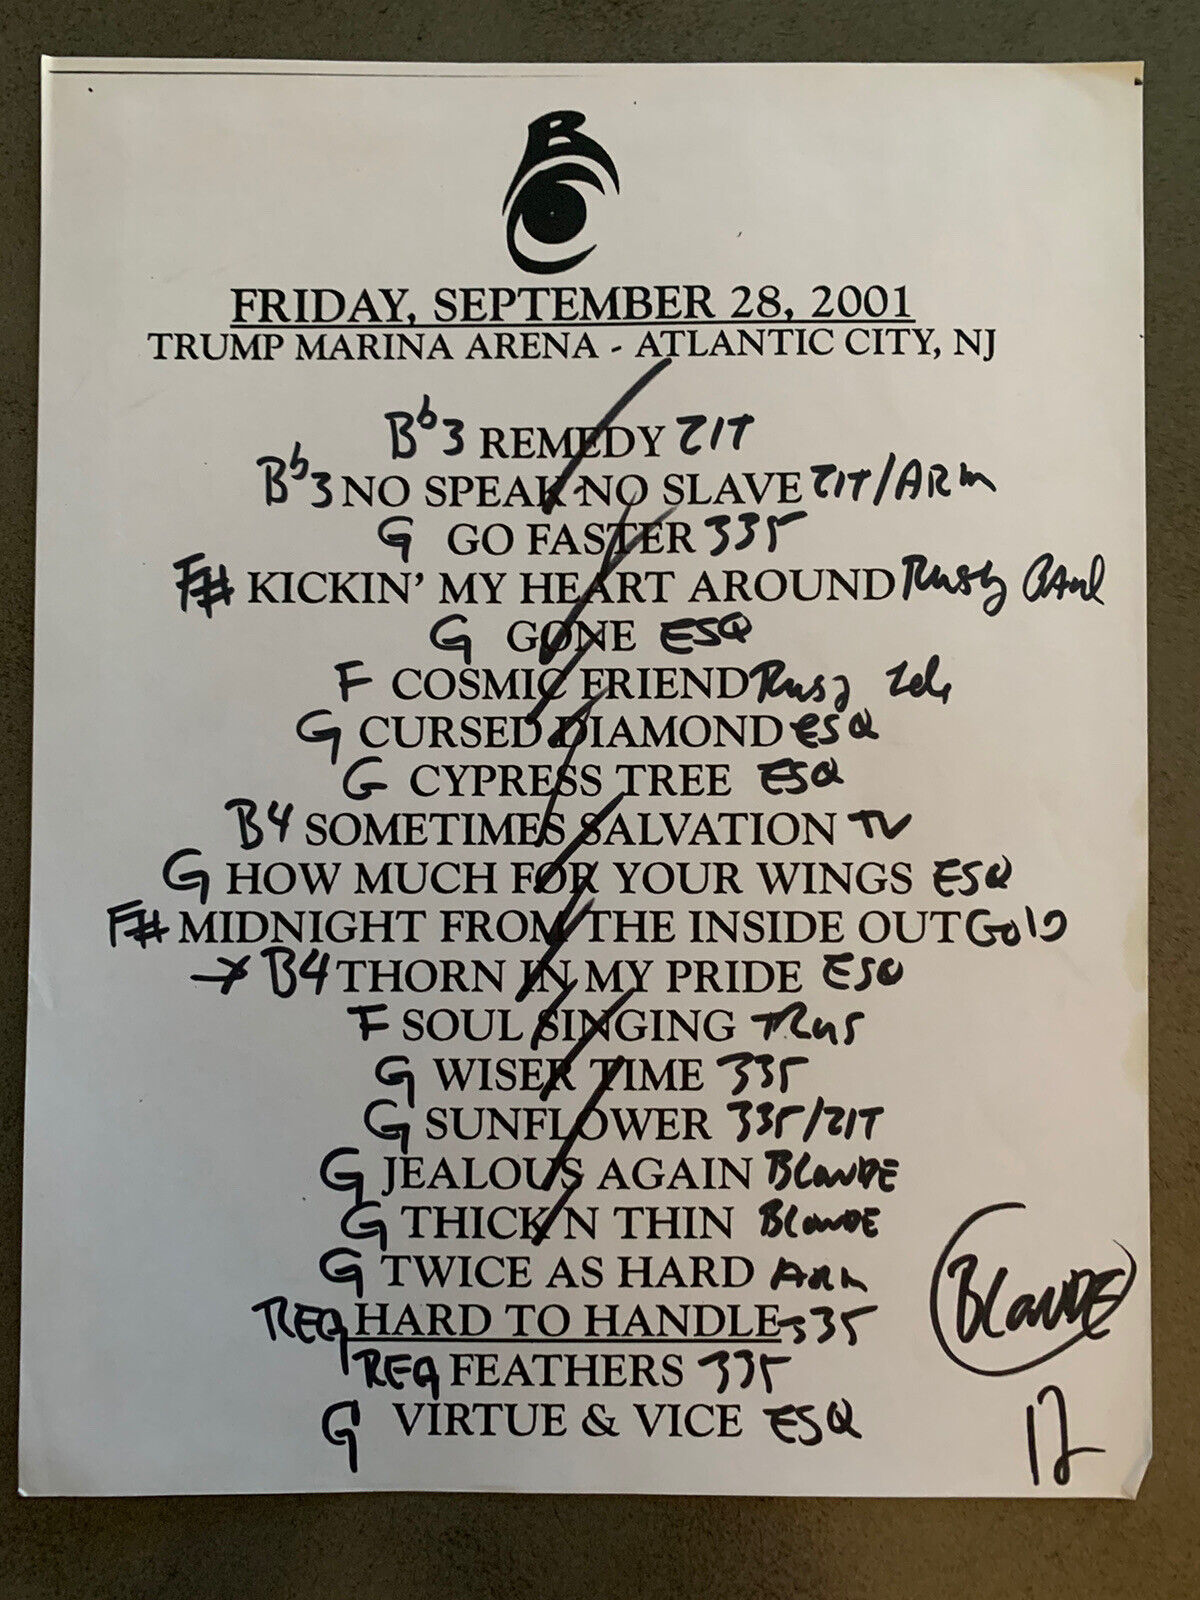 B
C
FRIDAY, SEPTEMBER 28, 2001
TRUMP MARINA ARENA - ATLANTIC CITY, NJ
B♭3 REMEDY ZIT
B♭3 NO SPEAK NO SLAVE ZIT/ARM
G GO FASTER 335
F# KICKIN' MY HEART AROUND Rusty
G GONE ESQ
F COSMIC FRIEND
G CURSED DIAMOND ESQ
G CYPRESS TREE ESQ
B4 SOMETIMES SALVATION TV
G HOW MUCH FOR YOUR WINGS ESQ
F# MIDNIGHT FROM THE INSIDE OUT Gold
→ B4 THORN IN MY PRIDE ESQ
F SOUL SINGING
G WISER TIME 335
G SUNFLOWER 335/ZIT
G JEALOUS AGAIN BLONDE
G THICK N THIN BLONDE
G TWICE AS HARD ARM
REG HARD TO HANDLE 335
REG FEATHERS 335
G VIRTUE & VICE ESQ
BLONDE
12